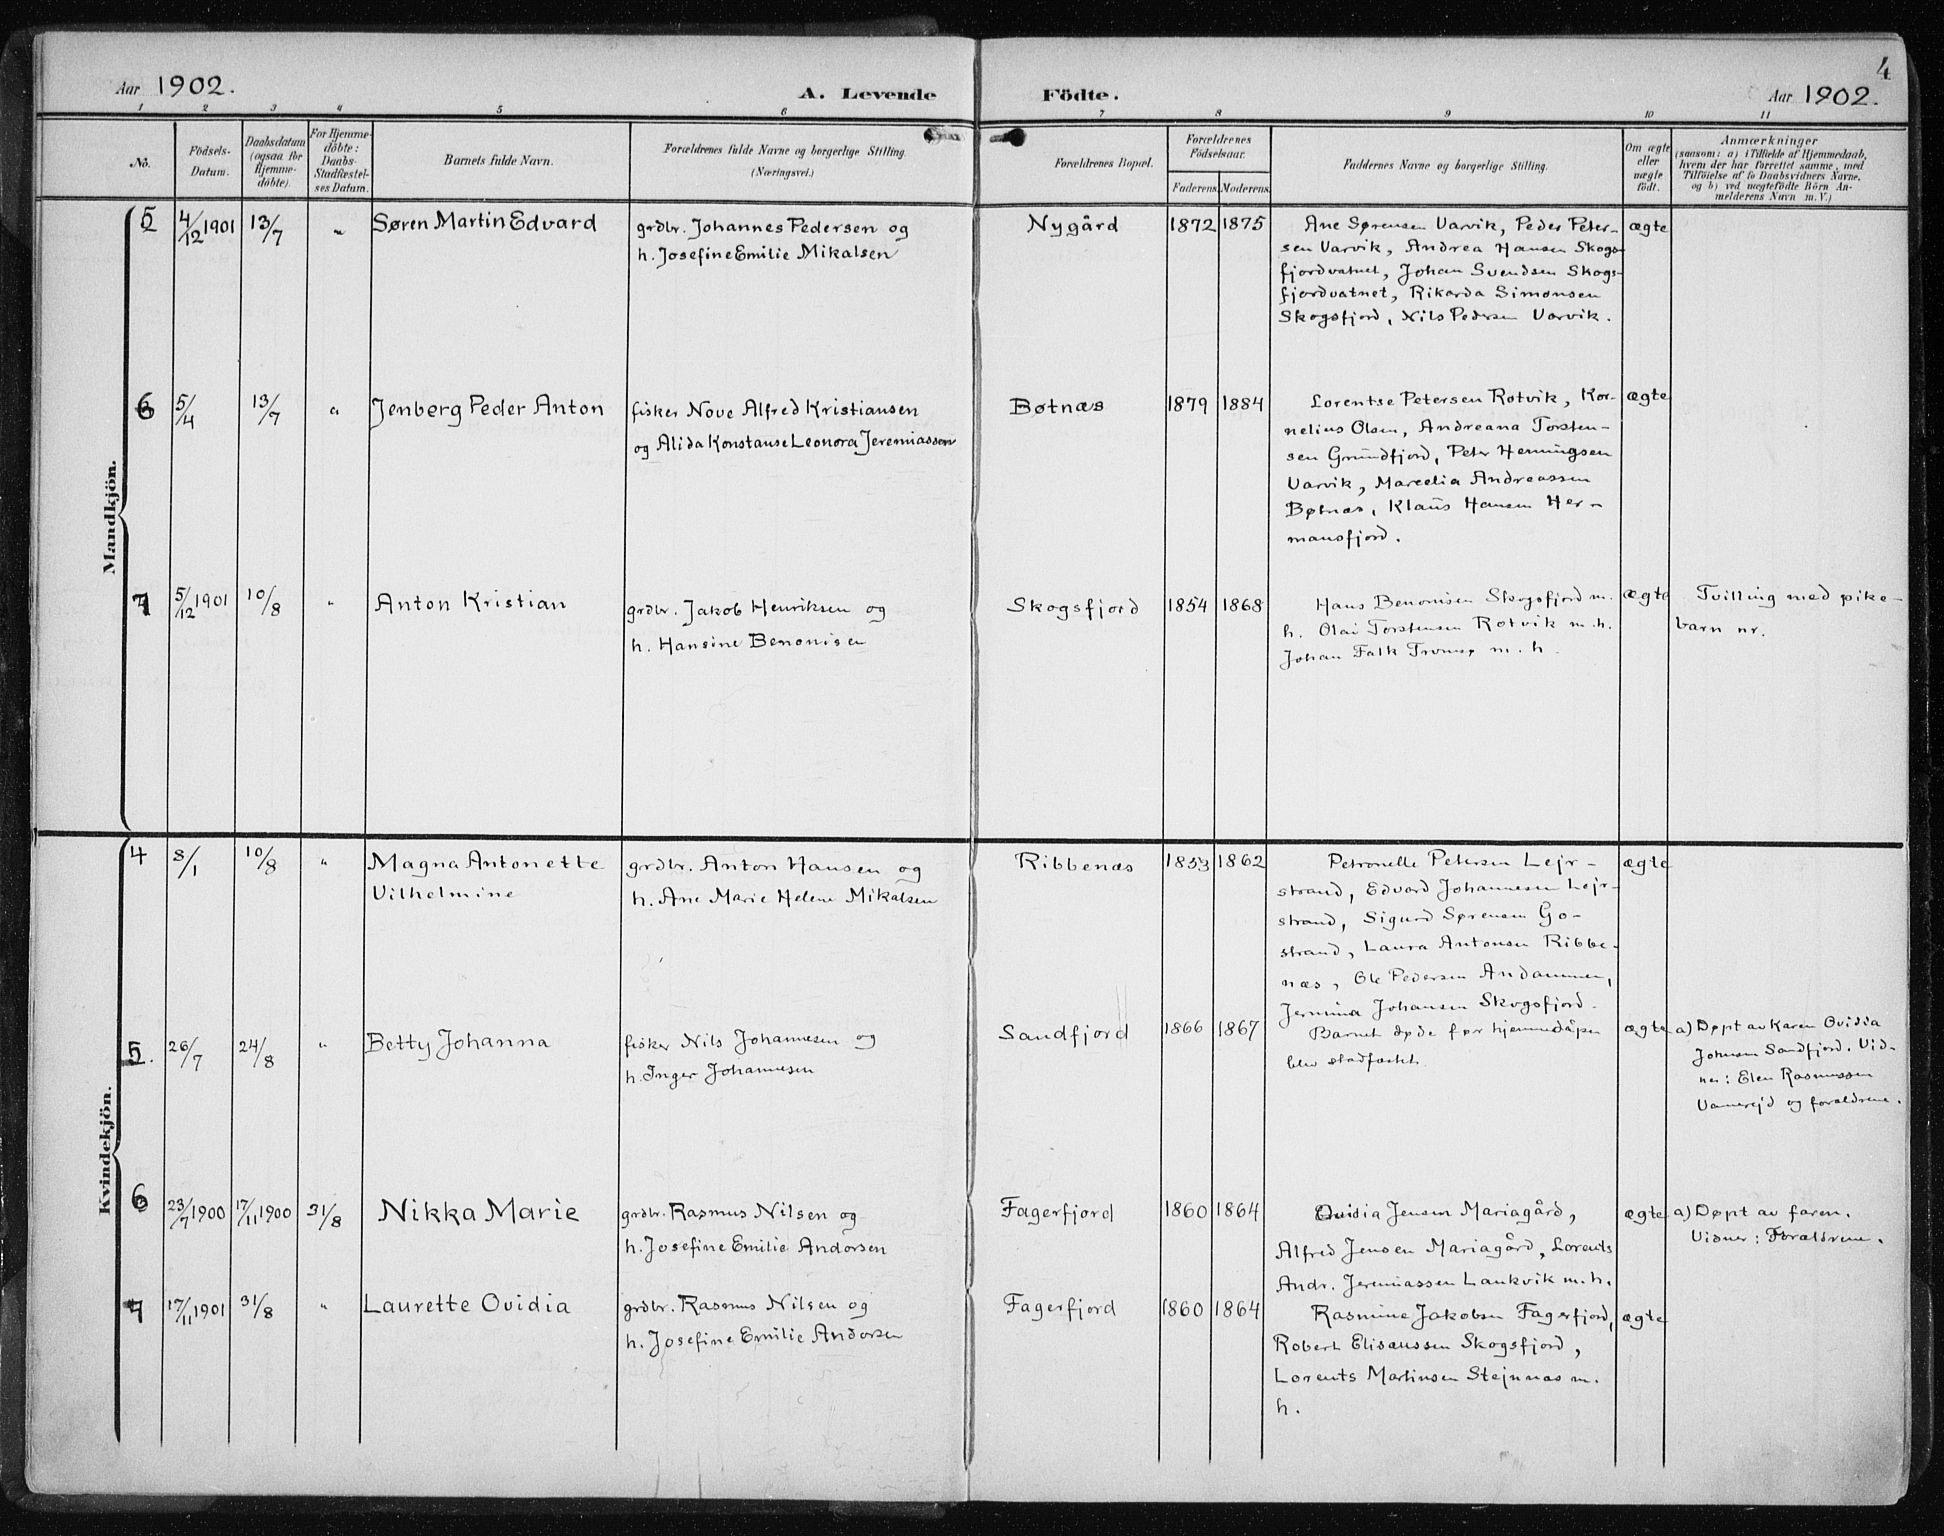 4
Aar 1902.
A. Levende Födte.
Aar 1902.
1 2 3 4 5 6 7 8 9 10 11
No.
Födsels-
Datum.
Daabsdatum
(ogsaa for
Hjemme-
döbte).
For Hjemme-
döbte:
Daabs-
Stadfæstel-
ses Datum.
Barnets fulde Navn.
Forældrenes fulde Navne og borgerlige Stilling.
(Næringsvei.)
Forældrenes Bopæl.
Forældrenes
Födselsaar.
Faderens. Moderens.
Faddernes Navne og borgerlige Stilling.
Om ægte
eller
uægte
födt.
Anmærkninger
(saasom: a) i Tilfælde af Hjemmedaab,
hvem der har forrettet samme, med
Tilföielse af to Daabsvidners Navne.
og b) ved uægtefödte Börn An-
melderens Navn m. V.)
Mandkjön.
5
4/12 1901
13/7
"
Søren Martin Edvard
grdbr. Johannes Pedersen og
h. Josefine Emilie Mikalsen
Nygård
1872 1875
Ane Sørensen Varvik, Peder Peter-
sen Varvik, Andrea Hansen Skogs-
fjordvatnet, Johan Svendsen Skogs-
fjordvatnet, Rikarda Simonsen
Skogsfjord, Nils Pedersen Varvik.
ægte
6
5/4
13/7
"
Jenberg Peder Anton
fisker Nove Alfred Kristiansen
og Alida Konstanse Leonora Jeremiassen
Bøtnæs
1879 1884
Lorentse Petersen Rotvik, Kor-
nelius Olsen, Andreana Torsten-
sen Grundfjord, Peter Henningsen
Varvik, Marcelia Andreassen
Bøtnæs, Klaus Hansen Her-
mansfjord.
ægte
7
5/12 1901
10/8
"
Anton Kristian
grdbr. Jakob Henriksen og
h. Hansine Benonisen
Skogsfjord
1854 1868
Hans Benonisen Skogsfjord m.
h. Olai Torstensen Rotvik m. h.
Johan Falk Tromsø m. h.
ægte
Tvilling med pike-
barn nr.
Kvindekjön.
4
8/1
10/8
"
Magna Antonette
Vilhelmine
grdbr. Anton Hansen og
h. Ane Marie Helene Mikalsen
Ribbenæs
1853 1862
Petronelle Petersen Lejr-
strand, Edvard Johannesen Lejr-
strand, Sigurd Sørensen Go-
strand, Laura Antonsen Ribbe-
næs, Ole Pedersen Andammen,
Jermina Johansen Skogsfjord.
ægte
5.
26/7
24/8
"
Betty Johanna
fisker Nils Johannesen og
h. Inger Johannesen
Sandfjord
1866 1867
Barnet døde før hjemmedåpen
blev stadfæstet.
ægte
a) Døpt av Karen Ovidia
Johnsen Sandfjord. Vid-
ner: Elen Rasmussen
og forældrene.
6
23/7 1900
17/11 1900
31/8
Nikka Marie
grdbr. Rasmus Nilsen og
h. Josefine Emilie Andorsen
Fagerfjord
1860 1864
Ovidia Jensen Mariagård,
Alfred Jensen Mariagård, Lorents
Andr. Jeremiassen Lankvik m. h.
ægte
a) Døpt av faren.
Vidner: Forældrene.
7
17/11 1901
31/8
"
Laurette Ovidia
grdbr. Rasmus Nilsen og
h. Josefine Emilie Andorsen
Fagerfjord
1860 1864
Rasmine Jakobsen Fagerfjord,
Robert Elisæussen Skogsfjord,
Lorents Martinsen Stejnnæs m.
h.
ægte